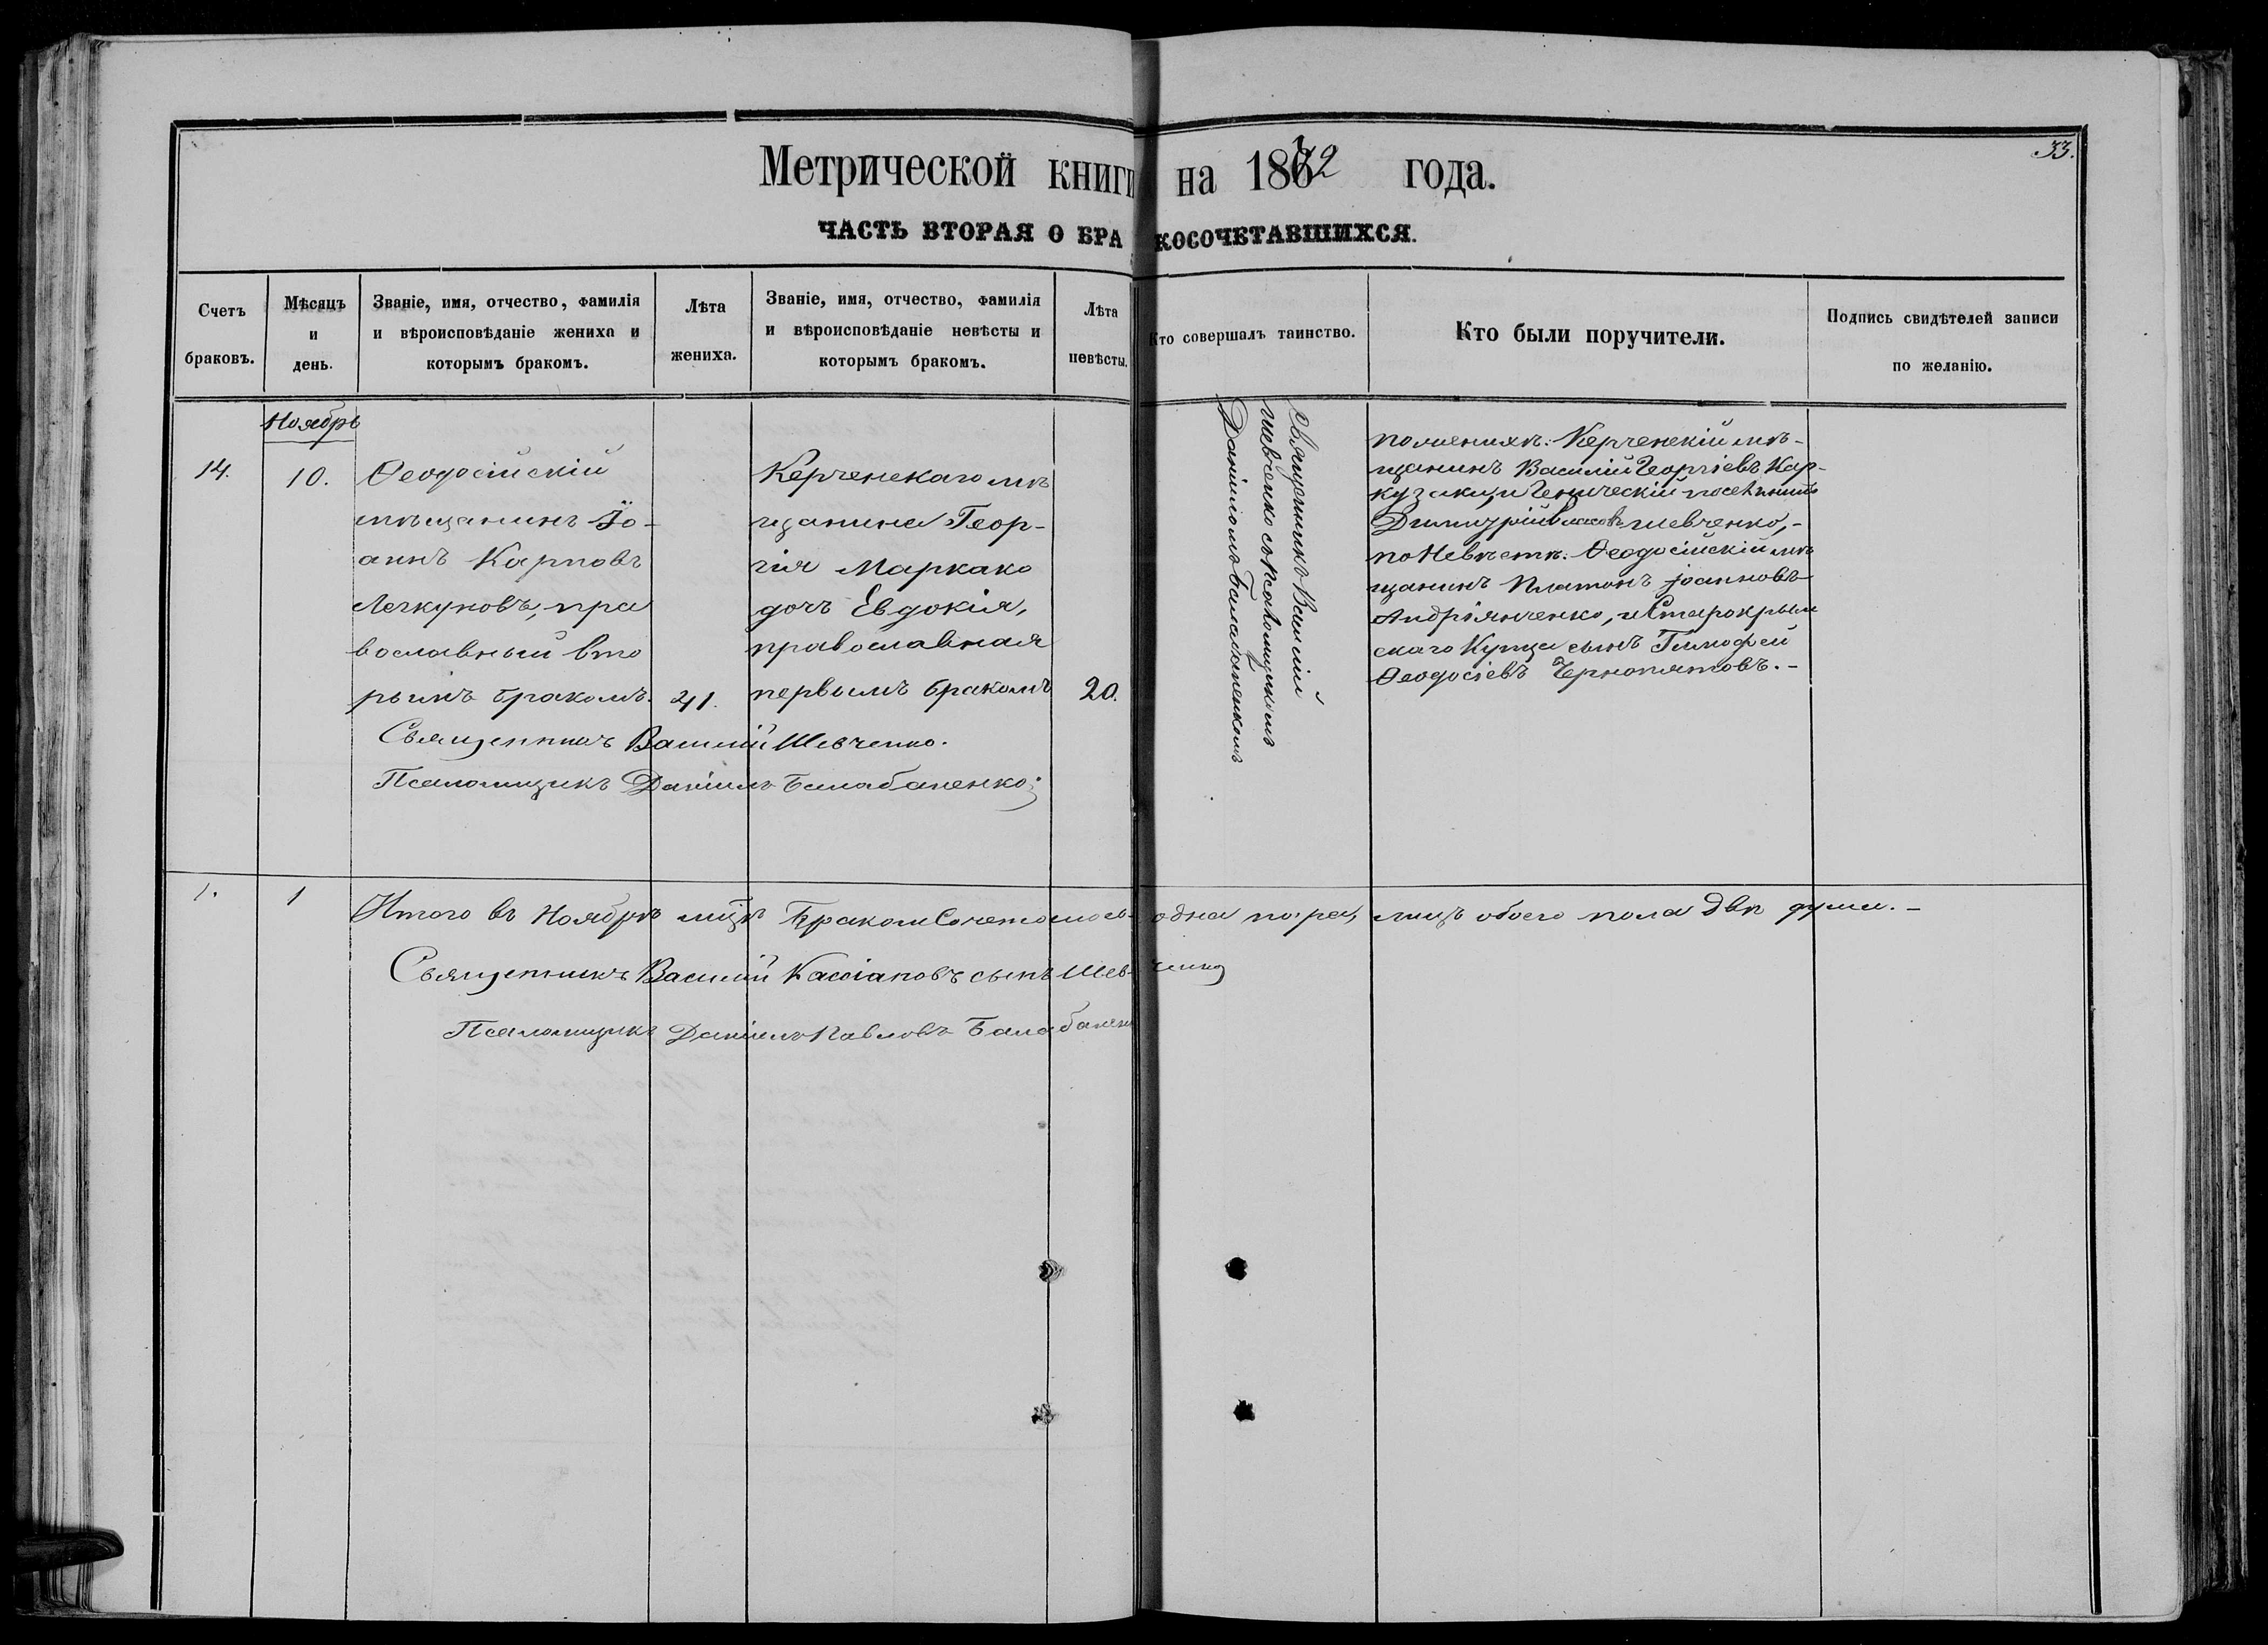 33.
Метрической книги на 1872 года.
ЧАСТЬ ВТОРАЯ О БРАКОСОЧЕТАВШИХСЯ.
Счетъ
браковъ.
Мѣсяцъ
и
день.
Званіе, имя, отчество, фамилія
и вѣроисповѣданіе жениха и
которымъ бракомъ.
Лѣта
жениха.
Званіе, имя, отчество, фамилія
и вѣроисповѣданіе невѣсты и
которымъ бракомъ.
Лѣта
невѣсты.
Кто совершалъ таинство.
Кто были поручители.
Подпись свидѣтелей записи
по желанію.
Ноябрь
14.
10.
Ѳеодосійскій
мѣщанинъ Іо-
аннъ Карповъ
Легкуновъ, пра
вославный вто
рымъ бракомъ.
41.
Керченскаго мѣ
щанина Геор-
гія Маркако
дочь Евдокія,
православная
первымъ бракомъ
20.
Священникъ Василій
Шевченко съ псаломщикомъ
Даніиломъ Балабаненкомъ
по женихѣ: Керченскій мѣ-
щанинъ Василій Георгіевъ Кар-
кузаки, и Геническій поселянинъ
Димитрій Шевченко,-
по Невѣстѣ: Ѳеодосійскій мѣ
щанинъ Платонъ Іоанновъ
Андріянченко, и Старокрым
скаго Купца сынъ Тимофей
Ѳеодосіевъ Чернопятовъ.-
Священникъ Василій Шевченко.
Псаломщикъ Даніилъ Балабаненко;
1.
1
Итого въ Ноябрѣ мцѣ Бракомъ Сочеталось одна пара, лицъ обоего пола двѣ души.-
Священникъ Василій Кассіановъ сынъ Шевченко
Псаломщикъ Даніилъ Павловъ Балабаненко